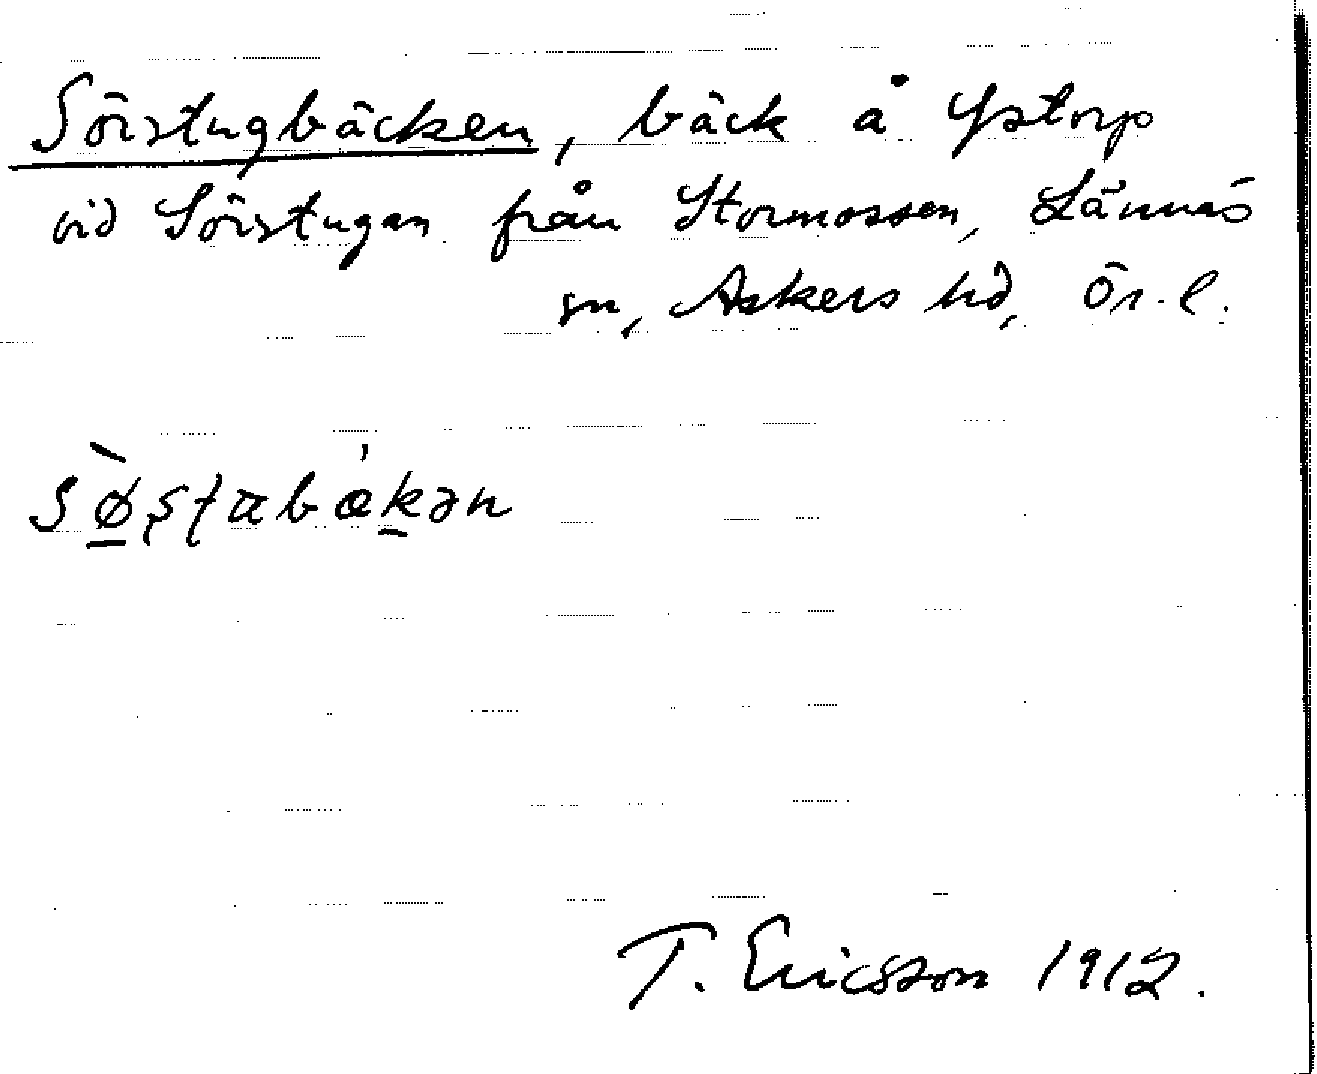 Sörstugbäcken, bäck å Ystorp
vid Sörstugan från Stormossen, Lännäs
sn, Askers hd, Ör. l.
sø̠̀ʂʈabæ̍k̠ən
T. Ericsson 1912.